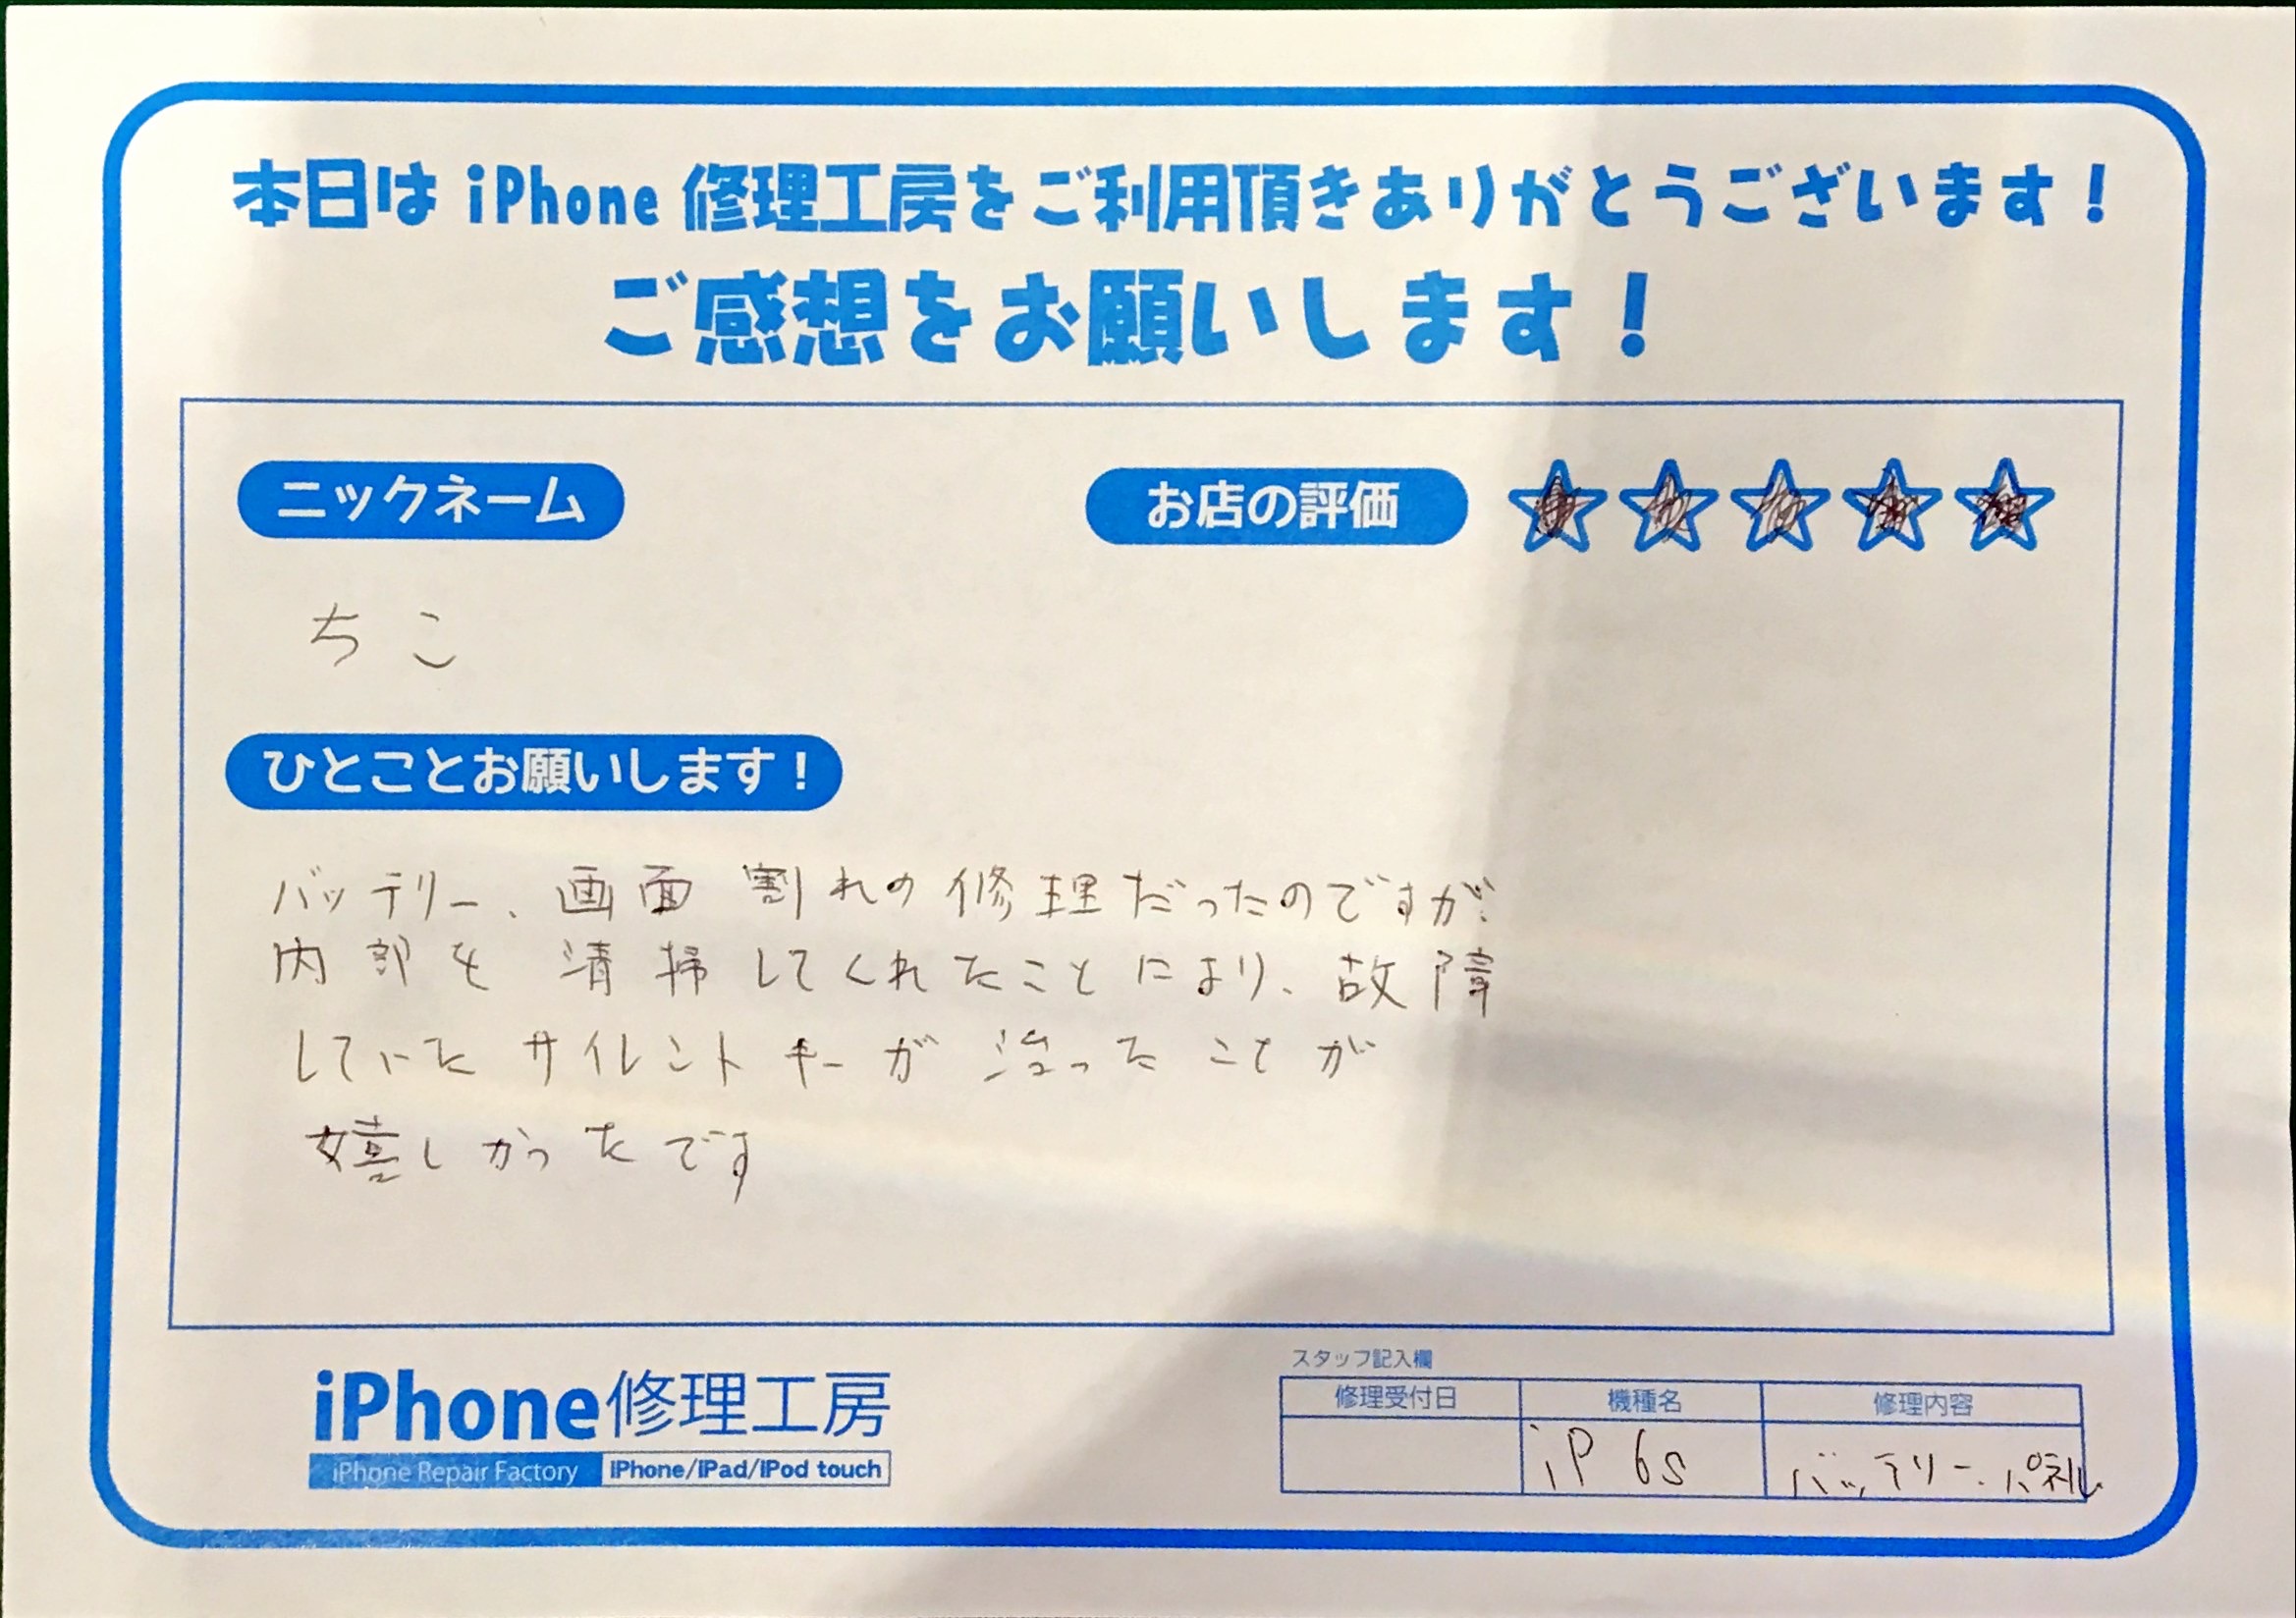 本日は iPhone 修理工房をご利用頂きありがとうございます！
ご感想をお願いします！
ニックネーム
お店の評価
ちこ
ひとことお願いします！
バッテリー、画面割れの修理だったのですが
内部を清掃してくれたことにより、故障
していたサイレントキーが治ったことが
嬉しかったです
iPhone修理工房
iPhone Repair Factory iPhone/iPad/iPod touch
スタッフ記入欄
修理受付日 機種名 修理内容
iP 6s バッテリー、パネル